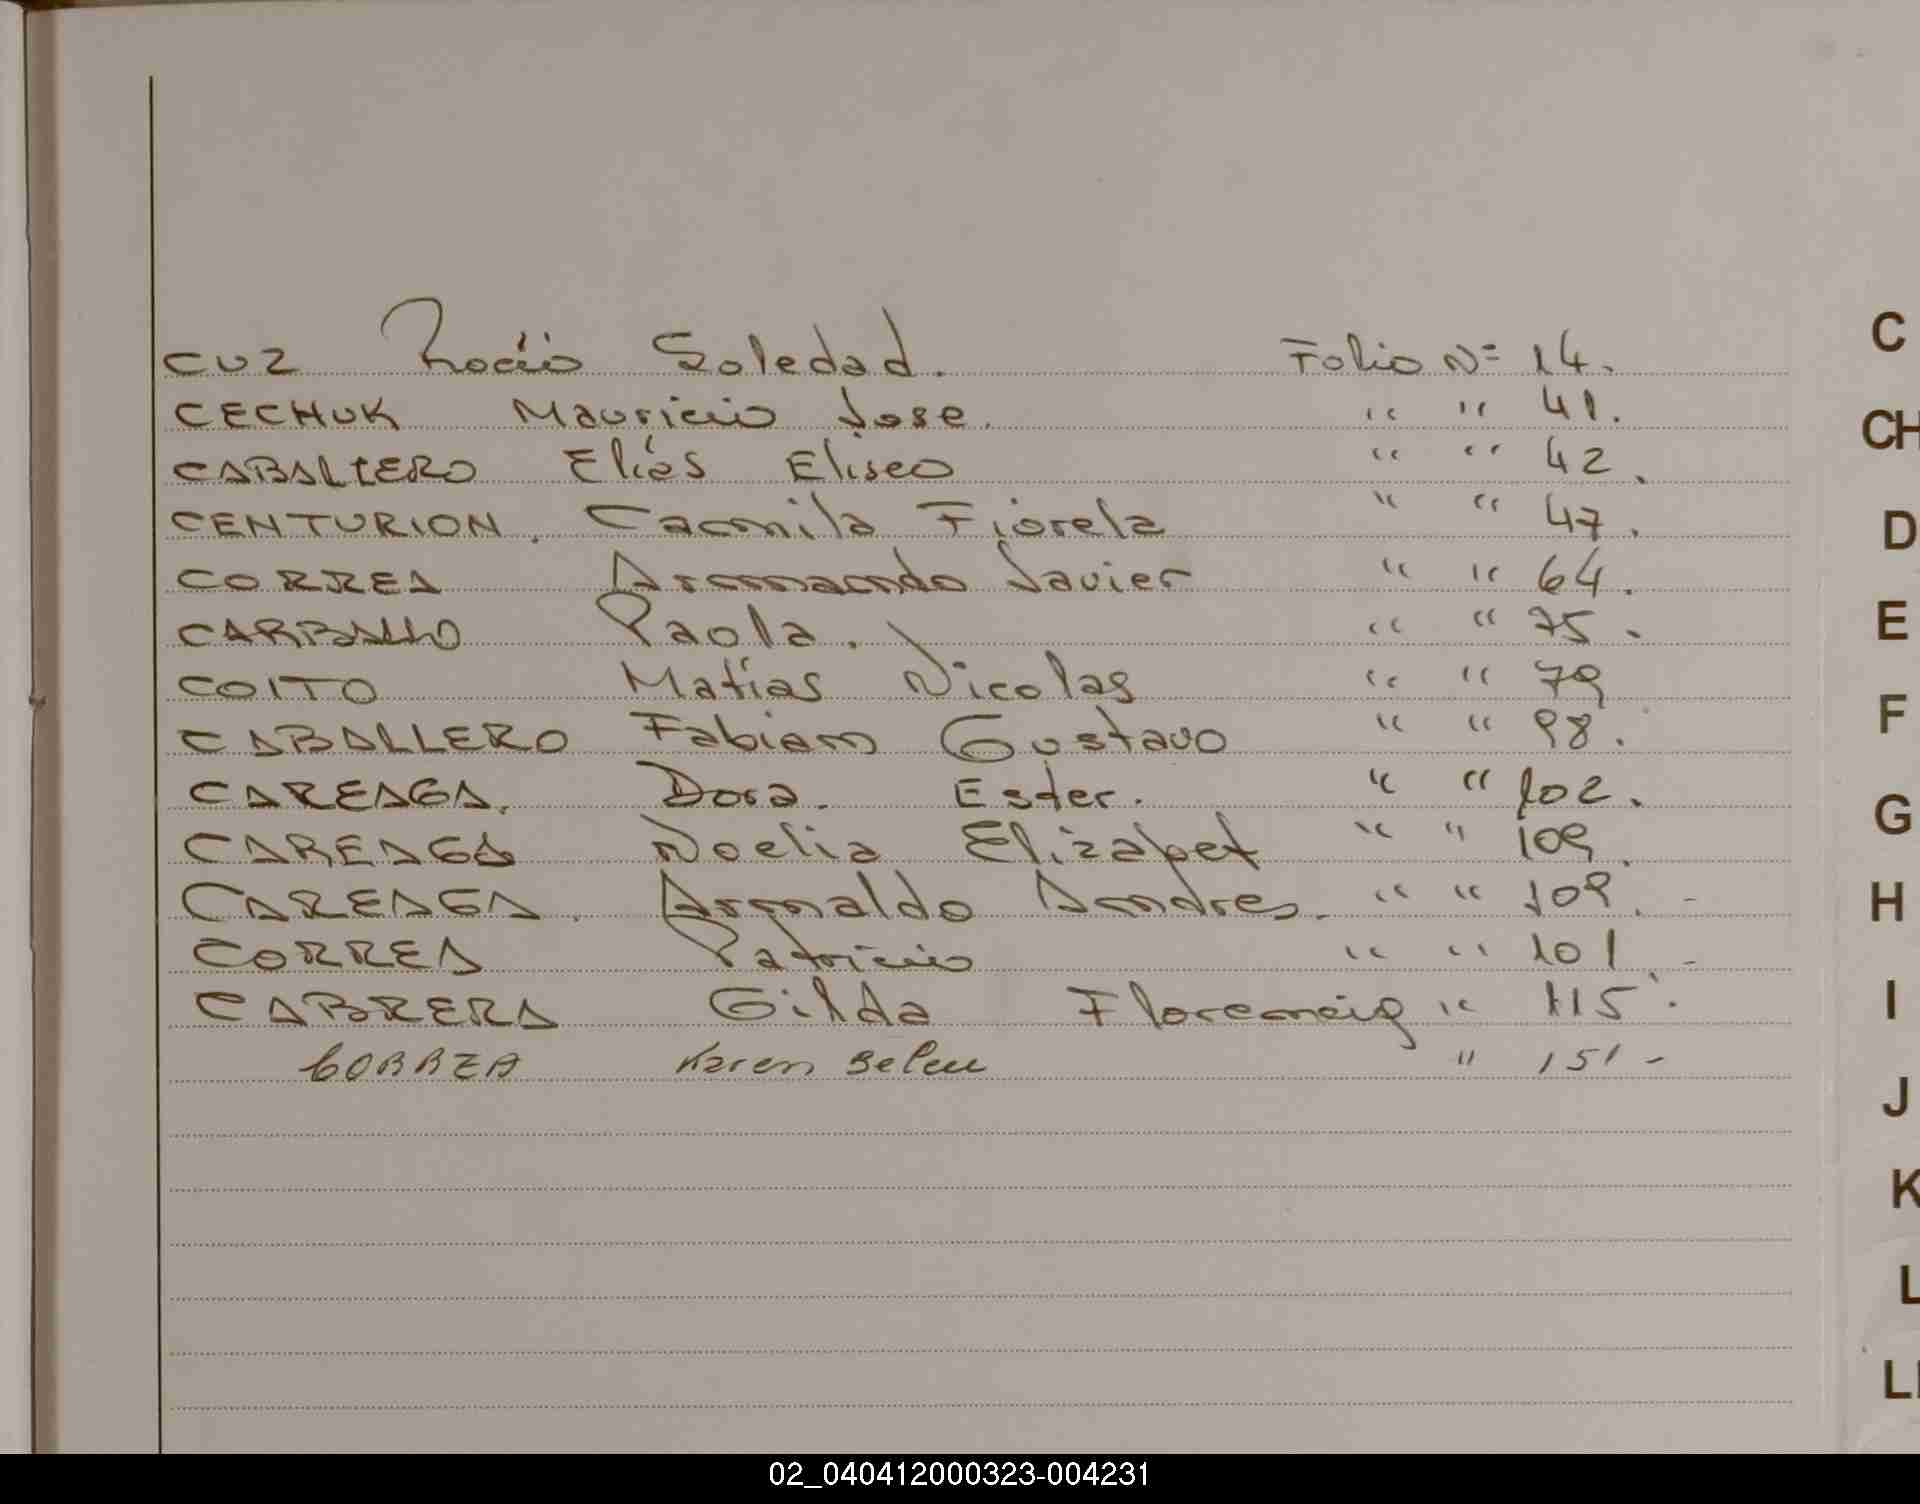 CUZ Rocío Soledad. Folio Nº 14.
CECHUK Mauricio Jose. " " 41.
CABALLERO Elías Eliseo " " 42.
CENTURION. Camila Fiorela " " 47.
CORREA Armando Javier " " 64.
CARBALLO Paola. " " 75.
COITO Matías Nicolas " " 79
CABALLERO Fabian Gustavo " " 98.
CAREAGA. Dora. Ester. " " 102.
CAREAGA Noelia Elizabet " " 109.
CAREAGA. Arnaldo Andres. " " 109. -
CORREA Patricio " " 101. -
CABRERA Gilda Florencia " 115.
CORREA Karen Belen " 151 -
C
CH
D
E
F
G
H
I
J
K
L
LL
02_040412000323-004231